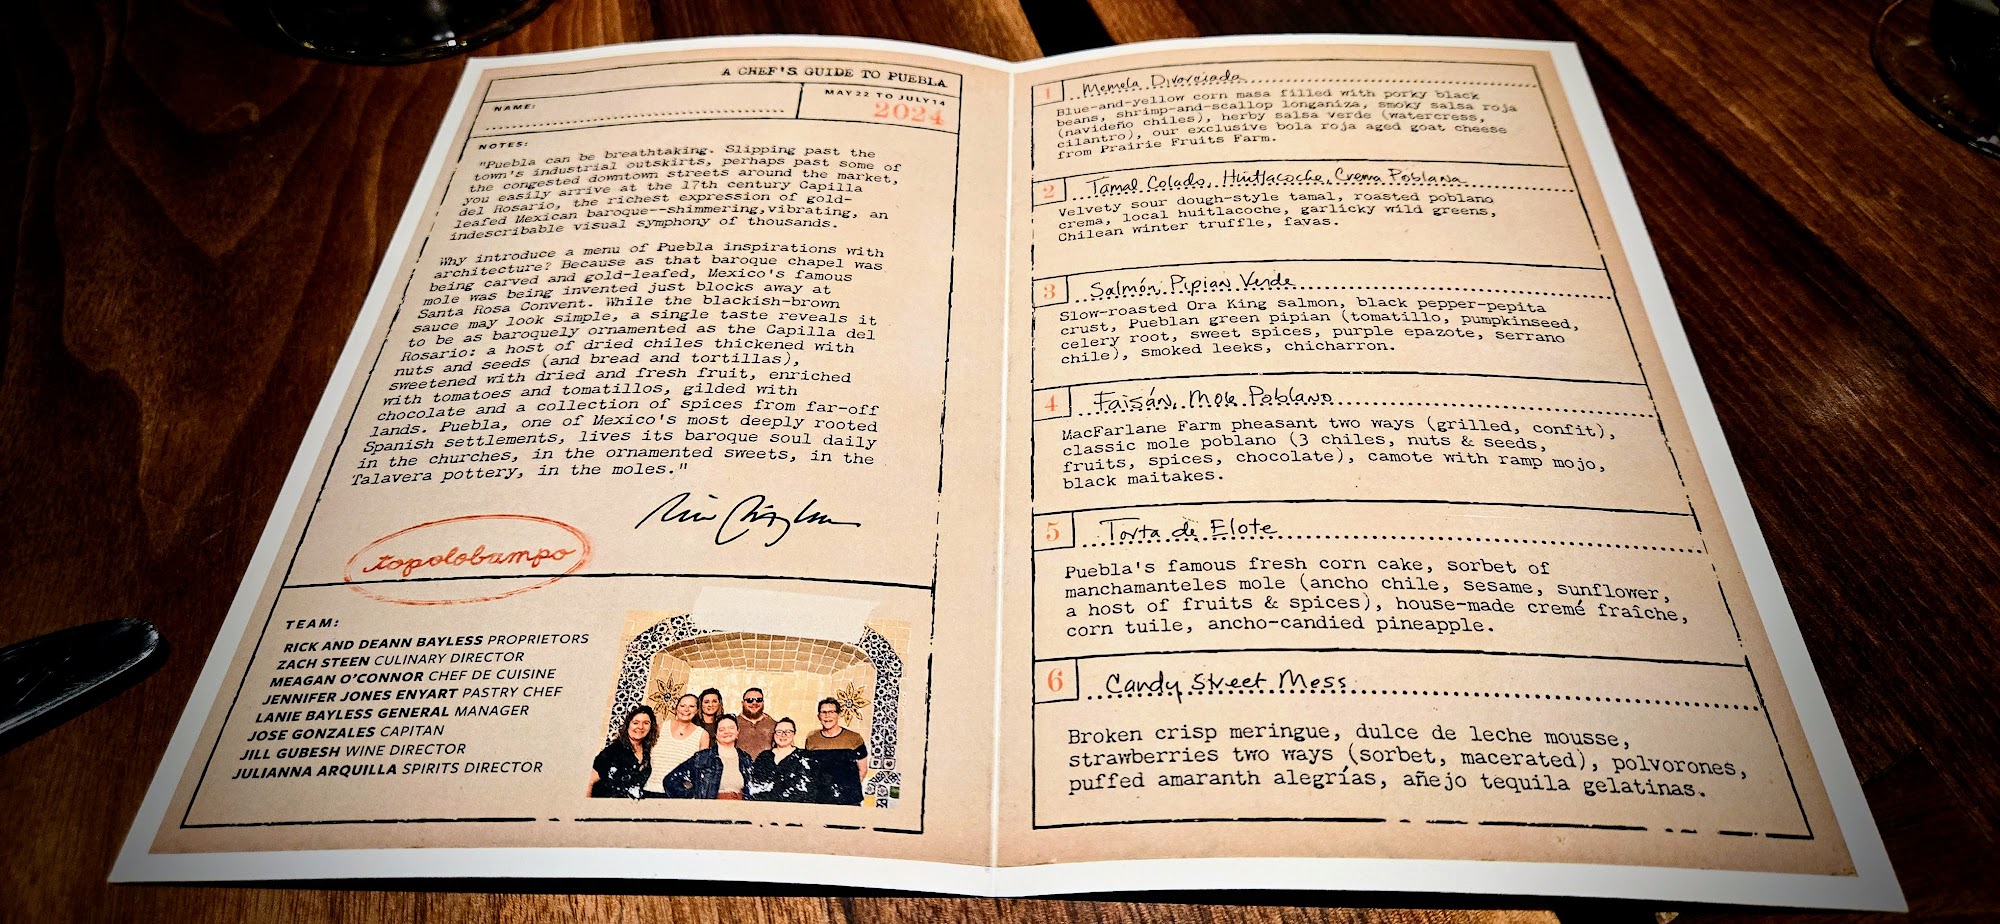 A CHEF'S GUIDE TO PUEBLA
NAME:
MAY 22 TO JULY 14
2024
NOTES:
"Puebla can be breathtaking. Slipping past the
town's industrial outskirts, perhaps past some of
the congested downtown streets around the market,
you easily arrive at the 17th century Capilla
del Rosario, the richest expression of gold-
leafed Mexican baroque--shimmering,vibrating, an
indescribable visual symphony of thousands.
Why introduce a menu of Puebla inspirations with
architecture? Because as that baroque chapel was
being carved and gold-leafed, Mexico's famous
mole was being invented just blocks away at
Santa Rosa Convent. While the blackish-brown
sauce may look simple, a single taste reveals it
to be as baroquely ornamented as the Capilla del
Rosario: a host of dried chiles thickened with
nuts and seeds (and bread and tortillas),
sweetened with dried and fresh fruit, enriched
with tomatoes and tomatillos, gilded with
chocolate and a collection of spices from far-off
lands. Puebla, one of Mexico's most deeply rooted
Spanish settlements, lives its baroque soul daily
in the churches, in the ornamented sweets, in the
Talavera pottery, in the moles."
topolobampo
TEAM:
RICK AND DEANN BAYLESS PROPRIETORS
ZACH STEEN CULINARY DIRECTOR
MEAGAN O'CONNOR CHEF DE CUISINE
JENNIFER JONES ENYART PASTRY CHEF
LANIE BAYLESS GENERAL MANAGER
JOSE GONZALES CAPITAN
JILL GUBESH WINE DIRECTOR
JULIANNA ARQUILLA SPIRITS DIRECTOR
1 Memela Divorciada
Blue-and-yellow corn masa filled with porky black
beans, shrimp-and-scallop longaniza, smoky salsa roja
(navideño chiles), herby salsa verde (watercress,
cilantro), our exclusive bola roja aged goat cheese
from Prairie Fruits Farm.
2 Tamal Colado, Huitlacoche, Crema Poblana
Velvety sour dough-style tamal, roasted poblano
crema, local huitlacoche, garlicky wild greens,
Chilean winter truffle, favas.
3 Salmón, Pipian Verde
Slow-roasted Ora King salmon, black pepper-pepita
crust, Pueblan green pipian (tomatillo, pumpkinseed,
celery root, sweet spices, purple epazote, serrano
chile), smoked leeks, chicharron.
4 Faisán, Mole Poblano
MacFarlane Farm pheasant two ways (grilled, confit),
classic mole poblano (3 chiles, nuts & seeds,
fruits, spices, chocolate), camote with ramp mojo,
black maitakes.
5 Torta de Elote
Puebla's famous fresh corn cake, sorbet of
manchamanteles mole (ancho chile, sesame, sunflower,
a host of fruits & spices), house-made cremé fraîche,
corn tuile, ancho-candied pineapple.
6 Candy Street Mess
Broken crisp meringue, dulce de leche mousse,
strawberries two ways (sorbet, macerated), polvorones,
puffed amaranth alegrías, añejo tequila gelatinas.